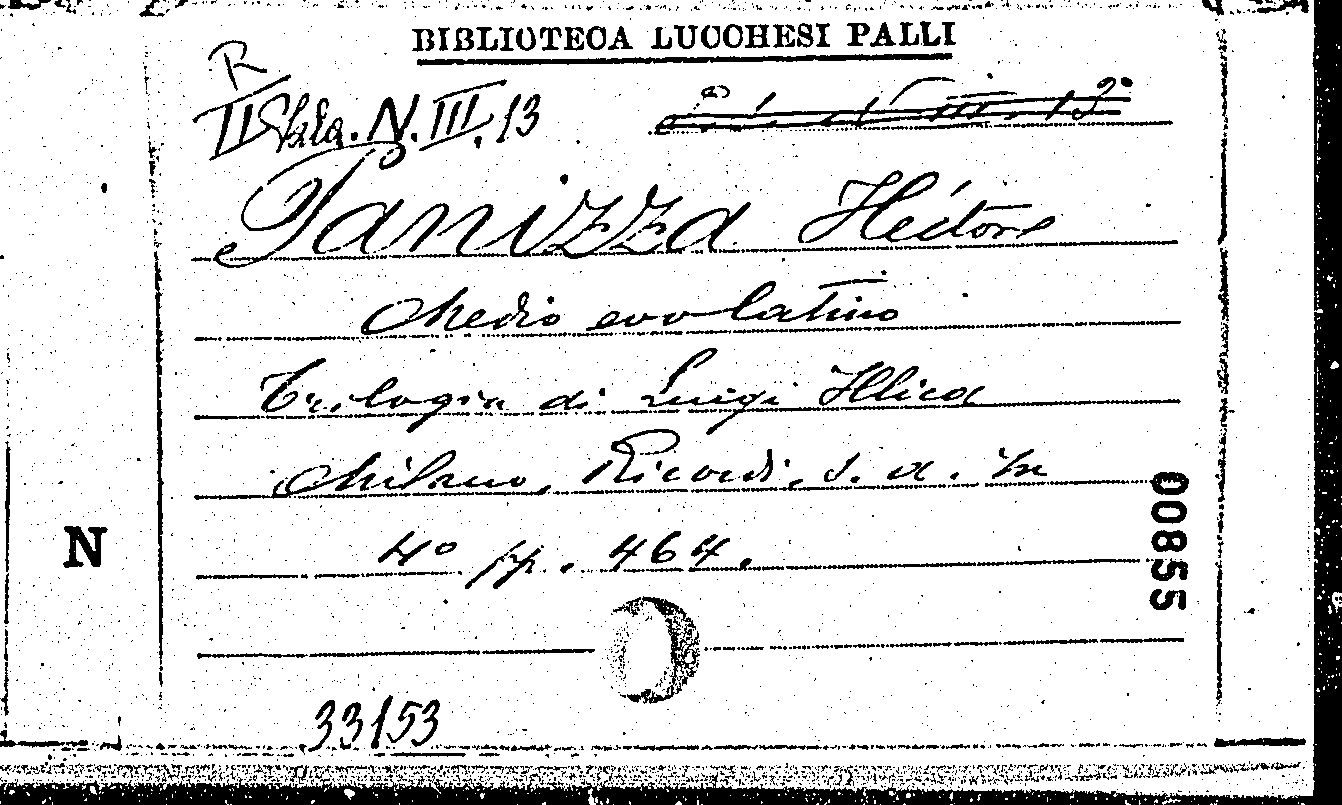 BIBLIOTECA LUCCHESI PALLI
R
II Sala. N. III. 13
Panizza Héctore
Medio evo latino
Trilogia di Luigi Illica
Milano, Ricordi, s. d. In
4° pp. 464.
N
00855
33153